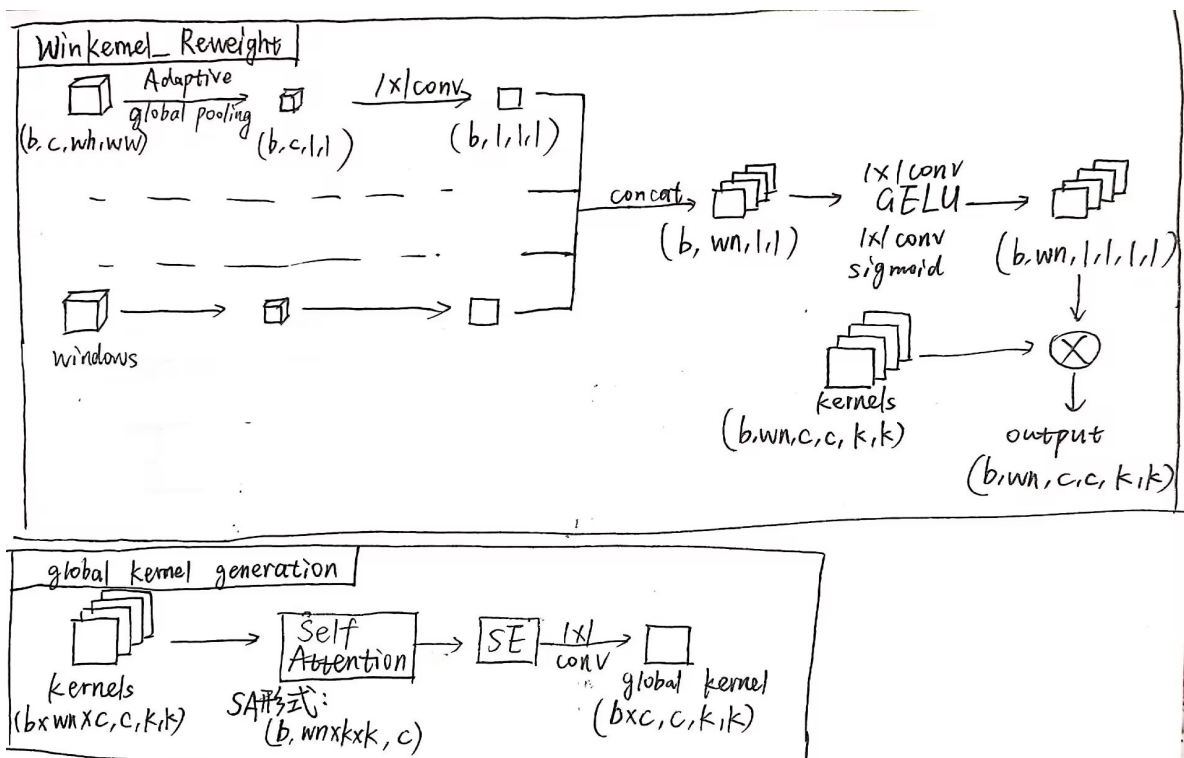 Winkernel_Reweight
Adaptive
global pooling
1x1 conv
(b, c, wh, ww)
(b, c, 1, 1)
(b, 1, 1, 1)
concat
(b, wn, 1, 1)
1x1 conv
GELU
1x1 conv
sigmoid
(b, wn, 1, 1, 1, 1)
windows
kernels
(b, wn, c, c, k, k)
output
(b, wn, c, c, k, k)
global kernel generation
kernels
(bxwnxc, c, k, k)
Self
Attention
SA形式:
(b, wnxkxk, c)
SE
1x1
conv
global kernel
(bxc, c, k, k)